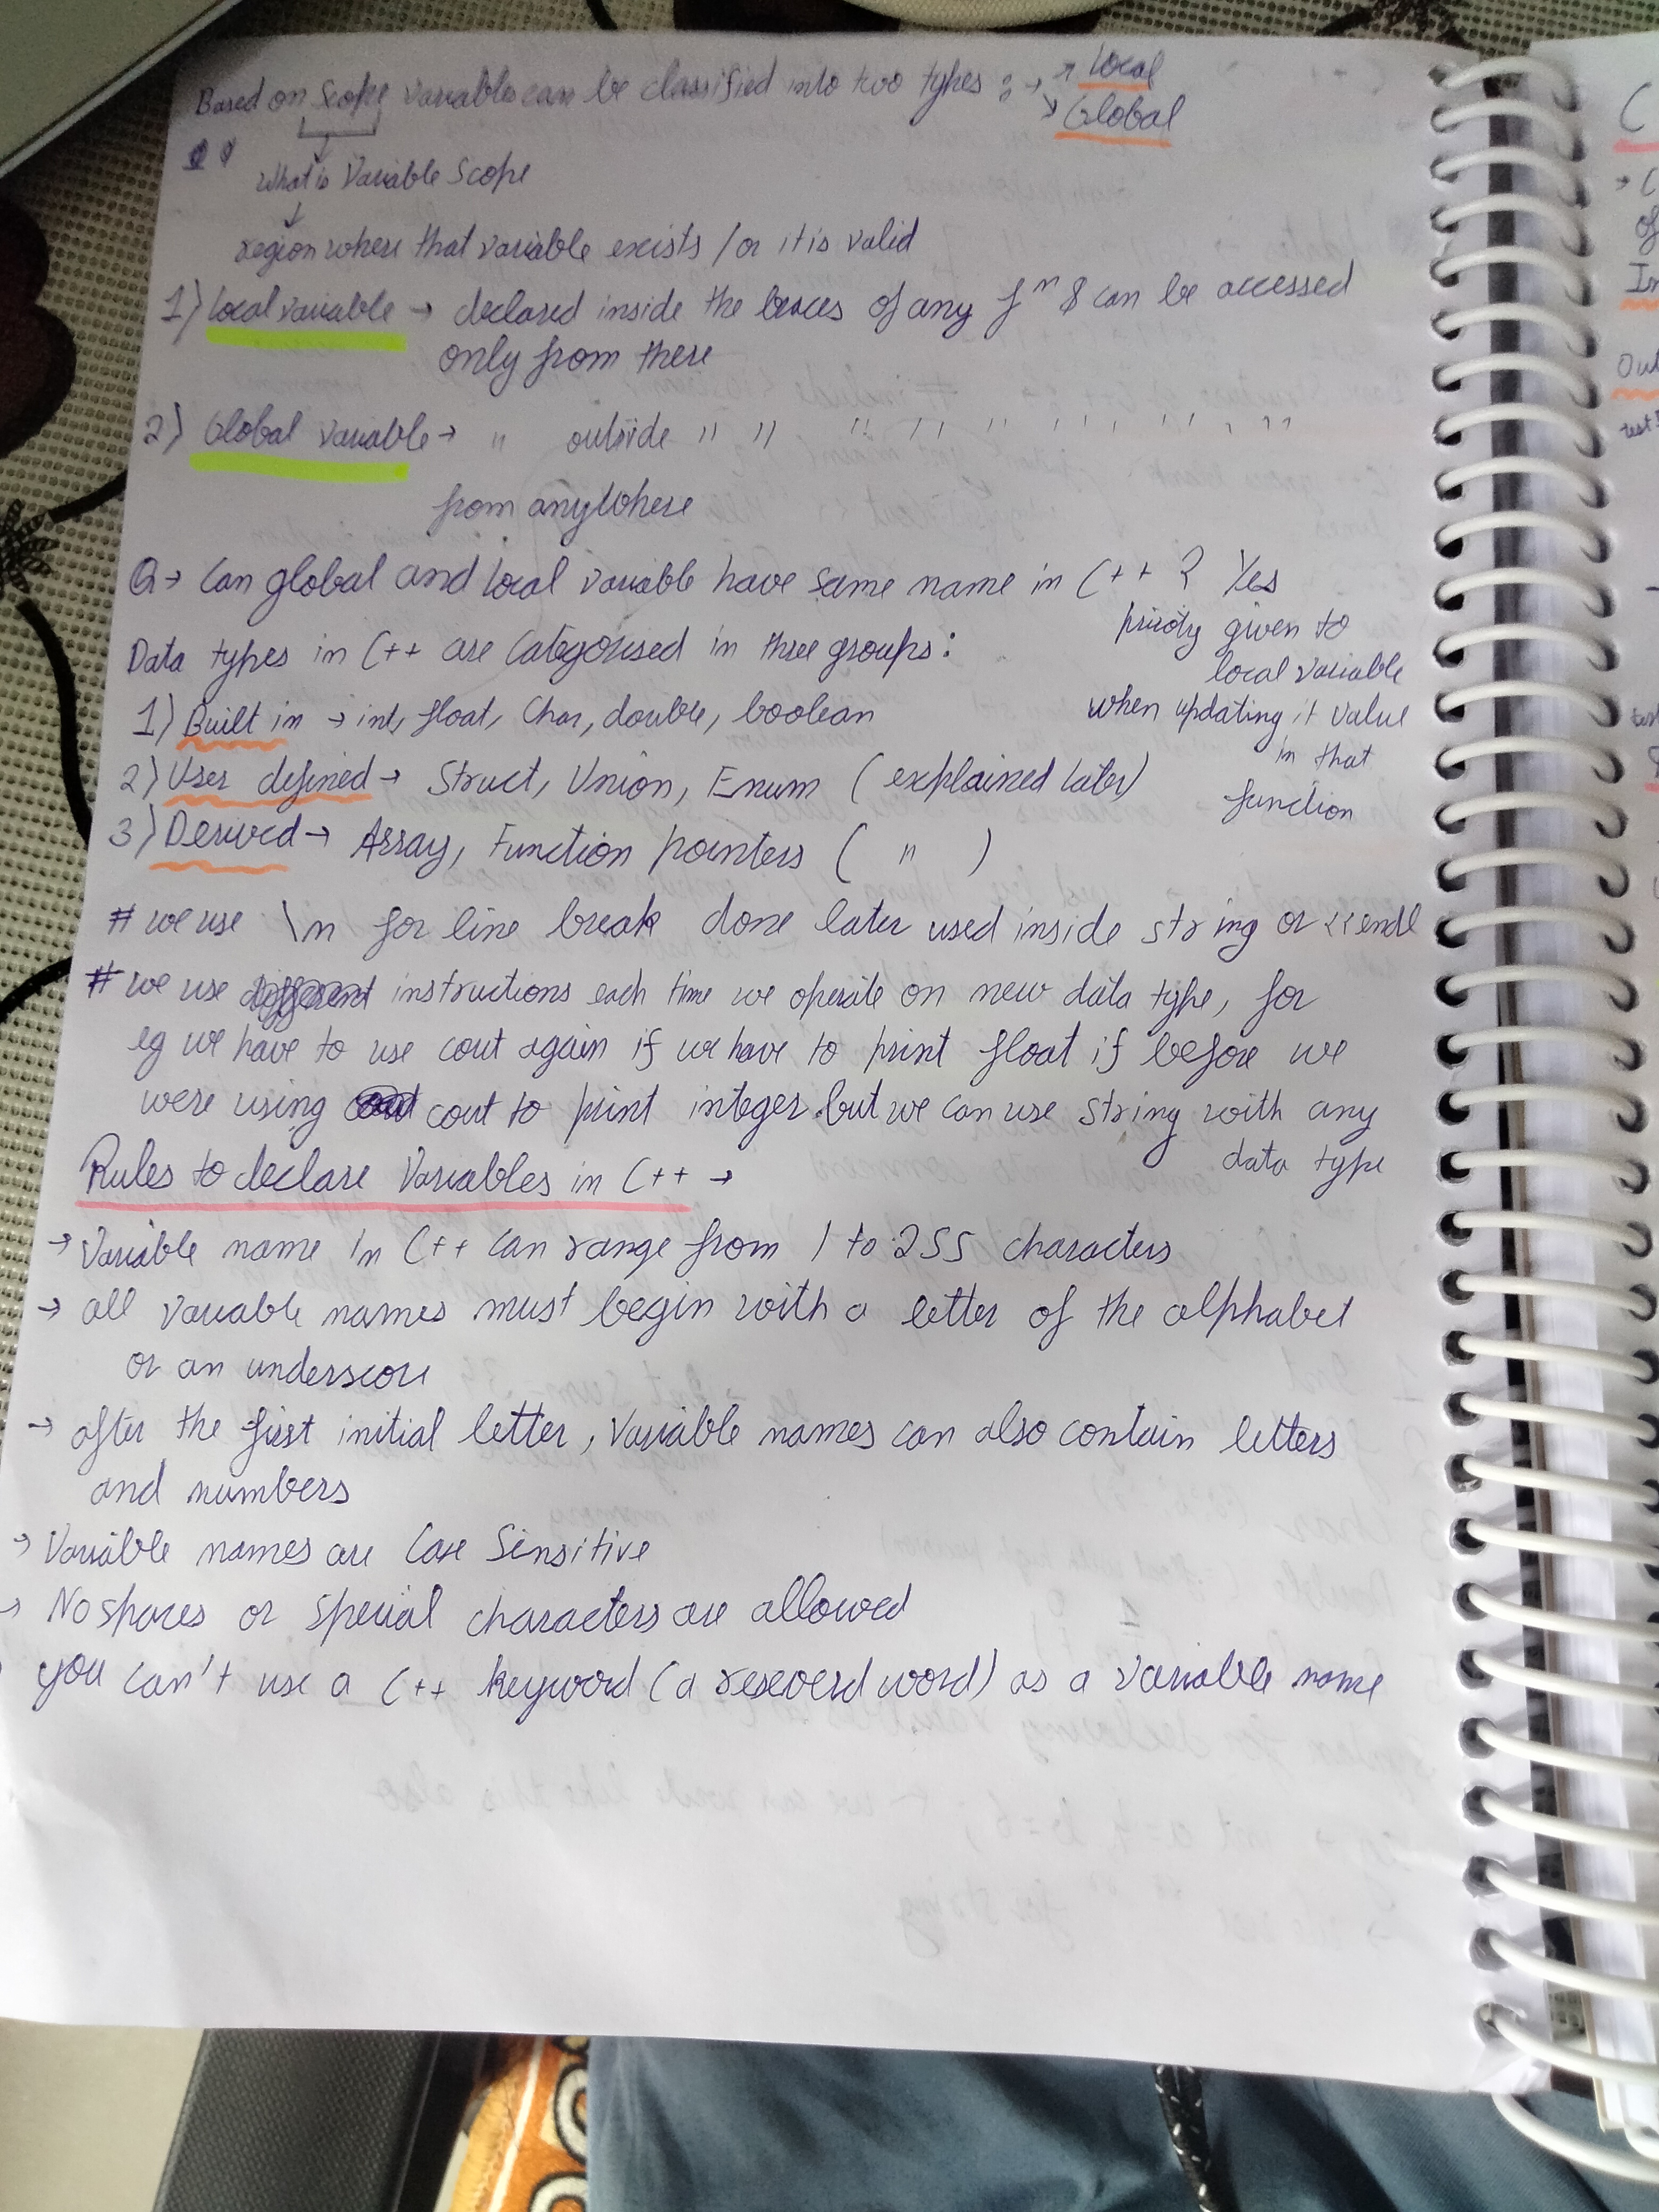 Based on Scope variables can be classified into two types : → Local
Global
What is Variable Scope
region where that variable exists / or it is valid
1) Local variable → declared inside the braces of any fⁿ & can be accessed
only from there
2) Global variable → " outside " " " " " " " " " " "
from anywhere
Q → Can global and local variable have same name in C++ ? Yes
priority given to
local variable
when updating it value
in that
function
Data types in C++ are Categorised in three groups :
1) Built in → int, float, Char, double, boolean
2) User defined → Struct, Union, Enum ( explained later)
3) Derived → Array, Function pointers ( " )
# we use \n for line break done later used inside string or <<endl
# we use instructions each time we operate on new data type, for
eg we have to use cout again if we have to print float if before we
were using cout to print integer. but we can use string with any
data type
Rules to declare Variables in C++ →
→ Variable name in C++ can range from 1 to 255 characters
→ all variable names must begin with a letter of the alphabet
or an underscore
→ after the first initial letter, variable names can also contain letters
and numbers
→ Variable names are Case Sensitive
→ No spaces or special characters are allowed
you can't use a C++ keyword (a reseverd word) as a variable name